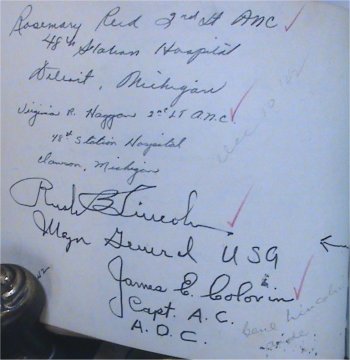 Rosemary Reid 2nd Lt ANC
48th Station Hospital
Detroit, Michigan
Virginia R. Haggan 2nd LT A.N.C.
48th Station Hospital
Clawson, Michigan
Rush B Lincoln
Major General USA
James E. Colovin
Capt. A.C.
A.D.C.
Gene Lincoln